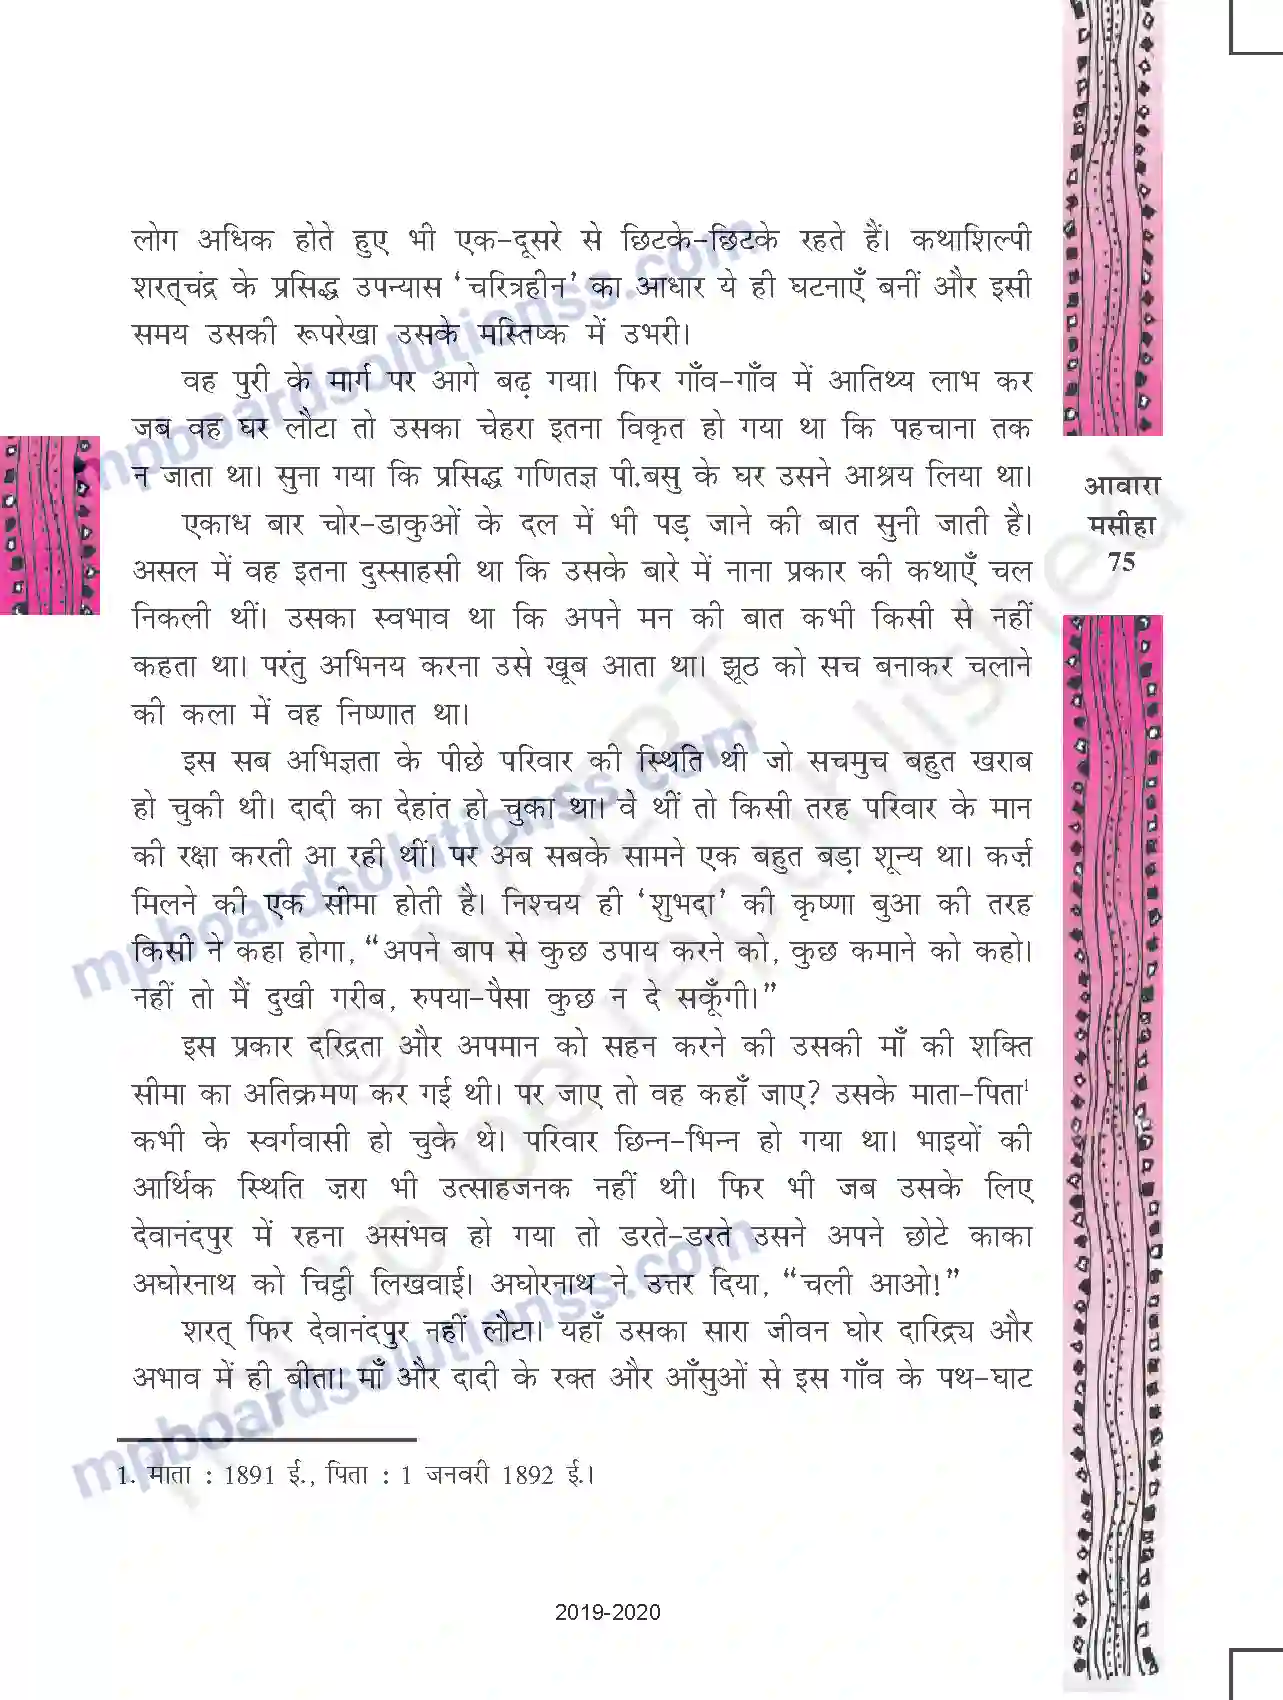 लोग अधिक होते हुए भी एक-दूसरे से छिटके-छिटके रहते हैं। कथाशिल्पी
शरत्चंद्र के प्रसिद्ध उपन्यास ‘चरित्रहीन’ का आधार ये ही घटनाएँ बनीं और इसी
समय उसकी रूपरेखा उसके मस्तिष्क में उभरी।
वह पुरी के मार्ग पर आगे बढ़ गया। फिर गाँव-गाँव में आतिथ्य लाभ कर
जब वह घर लौटा तो उसका चेहरा इतना विकृत हो गया था कि पहचाना तक
न जाता था। सुना गया कि प्रसिद्ध गणितज्ञ पी.बसु के घर उसने आश्रय लिया था।
एकाध बार चोर-डाकुओं के दल में भी पड़ जाने की बात सुनी जाती है।
असल में वह इतना दुस्साहसी था कि उसके बारे में नाना प्रकार की कथाएँ चल
निकली थीं। उसका स्वभाव था कि अपने मन की बात कभी किसी से नहीं
कहता था। परंतु अभिनय करना उसे खूब आता था। झूठ को सच बनाकर चलाने
की कला में वह निष्णात था।
इस सब अभिज्ञता के पीछे परिवार की स्थिति थी जो सचमुच बहुत खराब
हो चुकी थी। दादी का देहांत हो चुका था। वे थीं तो किसी तरह परिवार के मान
की रक्षा करती आ रही थीं। पर अब सबके सामने एक बहुत बड़ा शून्य था। कर्ज़
मिलने की एक सीमा होती है। निश्चय ही ‘शुभदा’ की कृष्णा बुआ की तरह
किसी ने कहा होगा, “अपने बाप से कुछ उपाय करने को, कुछ कमाने को कहो।
नहीं तो मैं दुखी गरीब, रुपया-पैसा कुछ न दे सकूँगी।”
इस प्रकार दरिद्रता और अपमान को सहन करने की उसकी माँ की शक्ति
सीमा का अतिक्रमण कर गई थी। पर जाए तो वह कहाँ जाए? उसके माता-पिता¹
कभी के स्वर्गवासी हो चुके थे। परिवार छिन्न-भिन्न हो गया था। भाइयों की
आर्थिक स्थिति ज़रा भी उत्साहजनक नहीं थी। फिर भी जब उसके लिए
देवानंदपुर में रहना असंभव हो गया तो डरते-डरते उसने अपने छोटे काका
अघोरनाथ को चिट्ठी लिखवाई। अघोरनाथ ने उत्तर दिया, “चली आओ!”
शरत् फिर देवानंदपुर नहीं लौटा। यहाँ उसका सारा जीवन घोर दारिद्र्य और
अभाव में ही बीता। माँ और दादी के रक्त और आँसुओं से इस गाँव के पथ-घाट
1. माता : 1891 ई., पिता : 1 जनवरी 1892 ई.।
2019-2020
आवारा
मसीहा
75
mpboardsolutionss.com
mpboardsolutionss.com
mpboardsolutionss.com
© NCERT
not to be republished